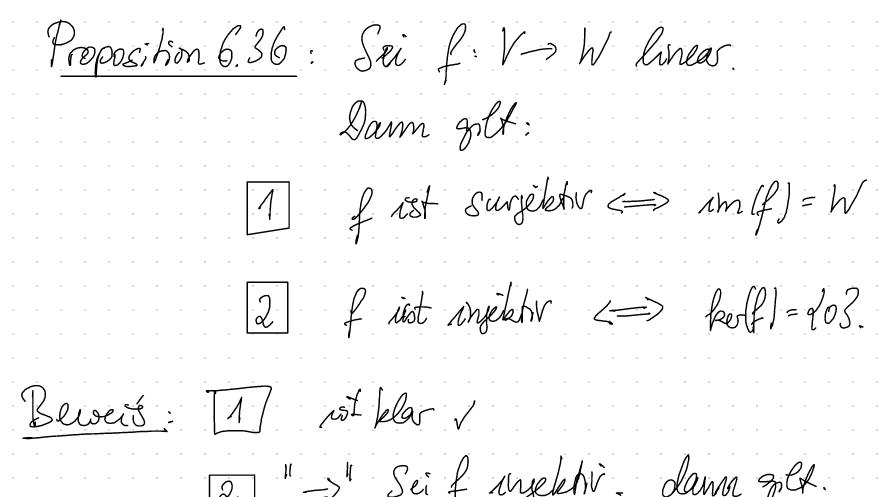 Proposition 6.36: Sei f: V → W linear.
Dann gilt:
1 f ist surjektiv ⟺ im(f) = W
2 f ist injektiv ⟺ ker(f) = {0}.
Beweis: 1 ist klar ✓
2. "→" Sei f injektiv, dann gilt.